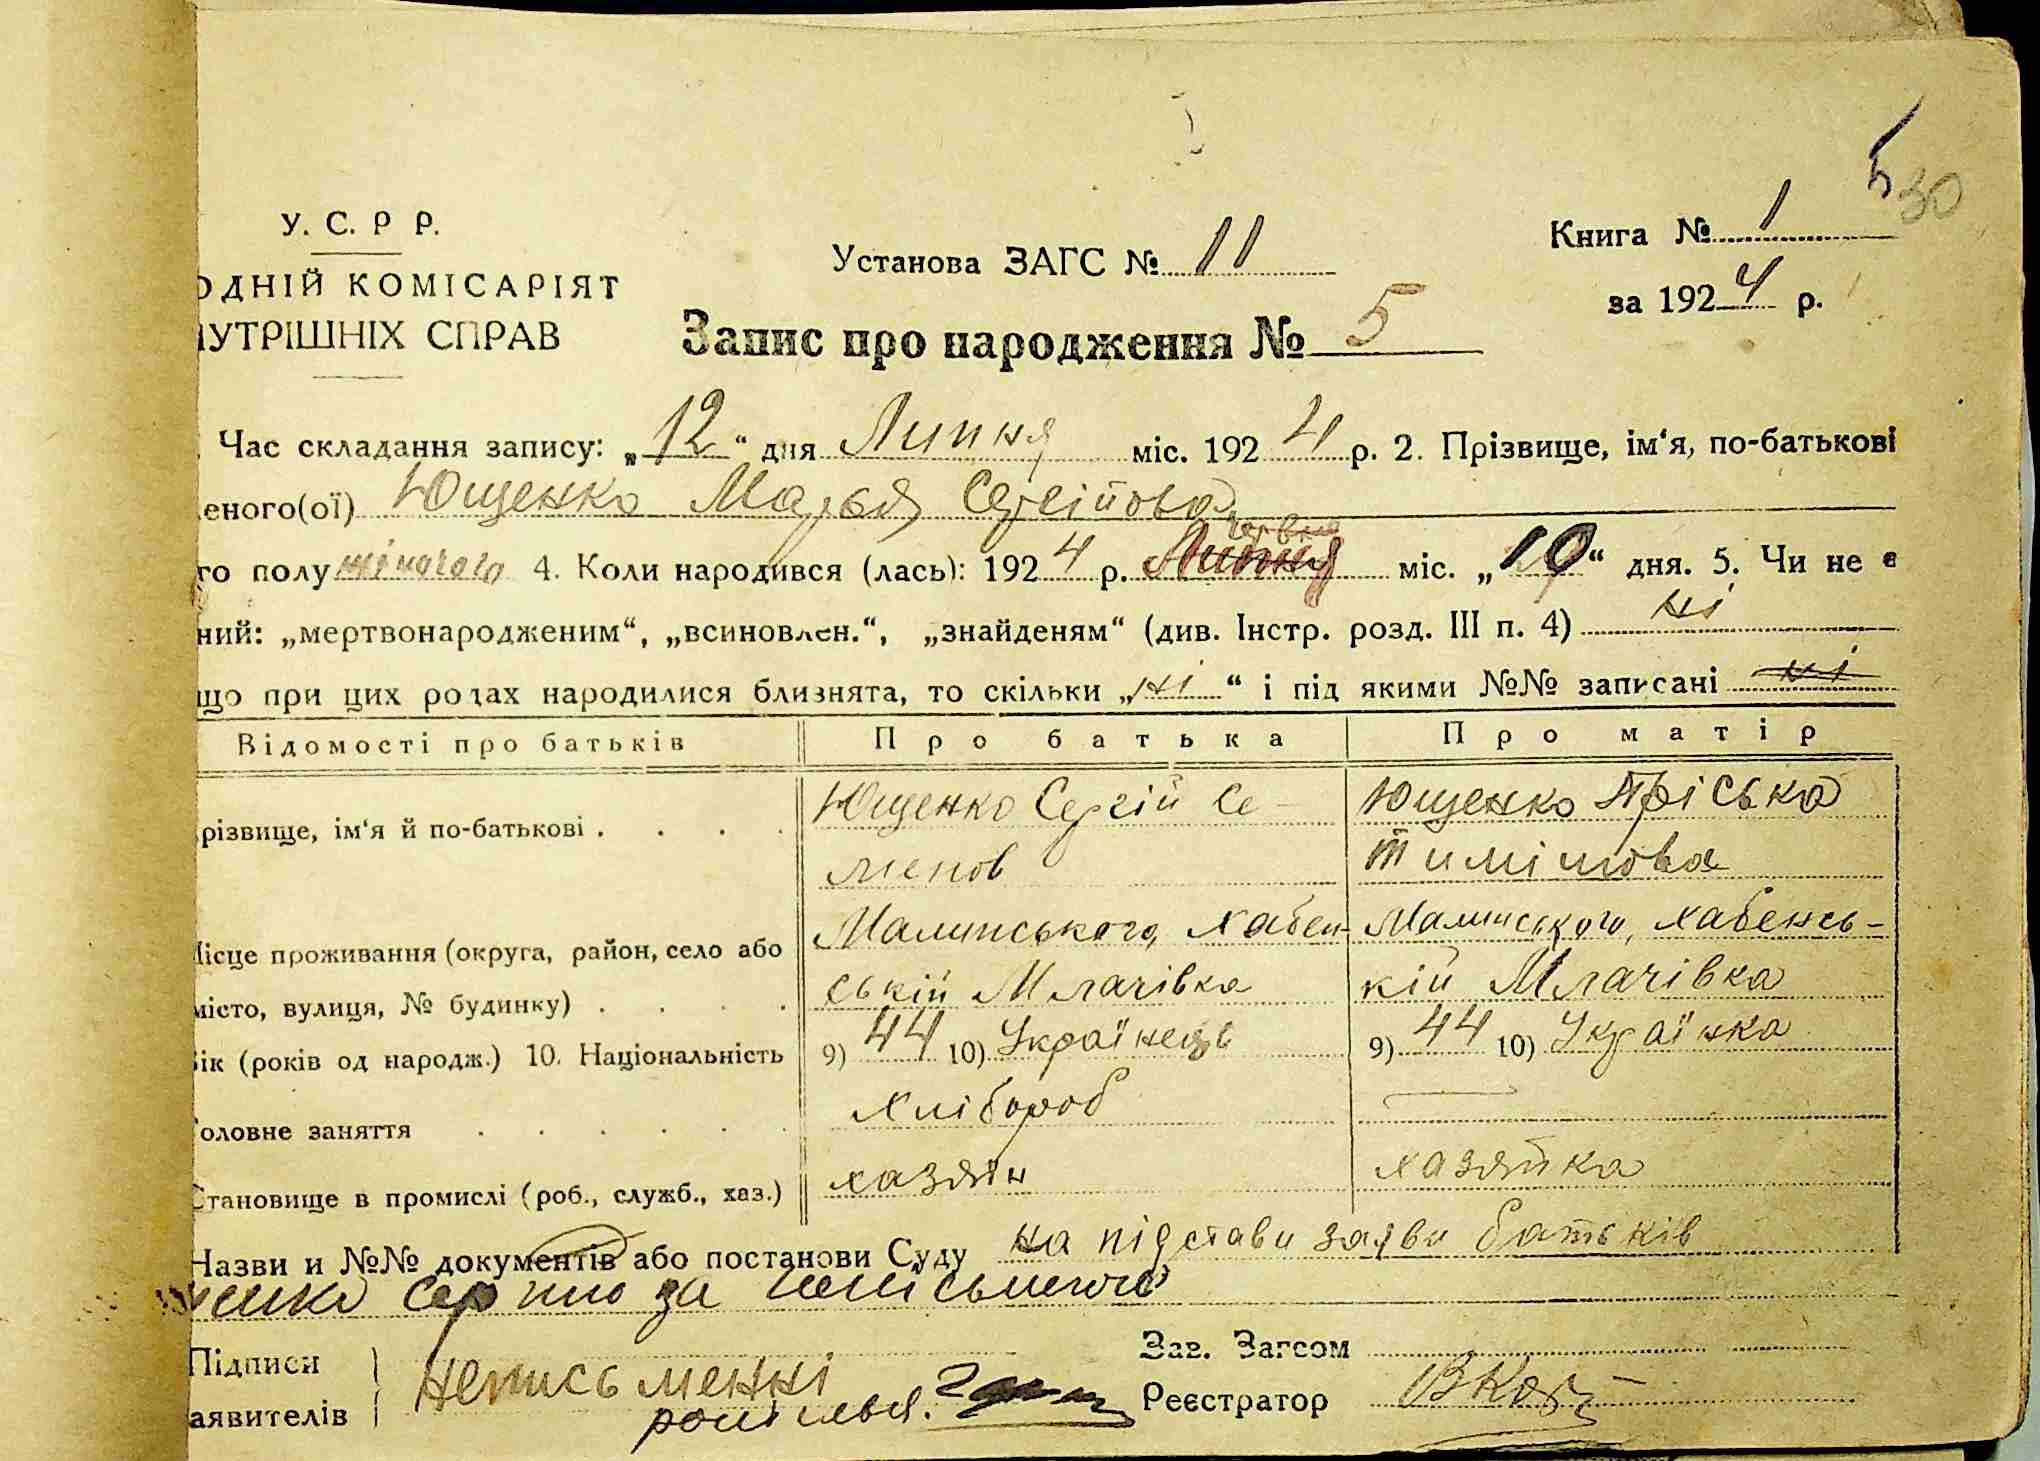 5
30
У. С. Р Р.
Установа ЗАГС № 11
Книга № 1
ОДНІЙ КОМІСАРІЯТ
за 1924 р.
НУТРІШНІХ СПРАВ
Запис про народження № 5
Час складання запису: „12“ дня Липня міс. 1924 р. 2. Прізвище, ім‘я, по-батькові
еного(ої) Ющенко Марья Сергійова
червня
го полу жіночого 4. Коли народився (лась): 1924 р. Липня міс. „10“ дня. 5. Чи не є
ний: „мертвонародженим“, „всиновлен.“, „знайденям“ (див. Інстр. розд. III п. 4) ні
що при цих родах народилися близнята, то скільки „ні“ і під якими №№ записані ні
Відомості про батьків Про батька Про матір
різвище, ім‘я й по-батькові . . . . Ющенко Сергій Се- Ющенко Пріська
менов Тимішова
Місце проживання (округа, район, село або Малинського, Хабен- Малинського, Хабенсь-
місто, вулиця, № будинку) . . . . ський Млачівка кій Млачівка
Вік (років од народж.) 10. Національність 9) 44 10) Українець 9) 44 10) Українка
Головне заняття . . . . . . Хлібороб
Становище в промислі (роб., служб., хаз.) хазяїн хазяйка
Назви и №№ документів або постанови Суду на підстави заяви батьків
за
Підписи неписьменні Зав. Загсом
аявителів Реєстратор